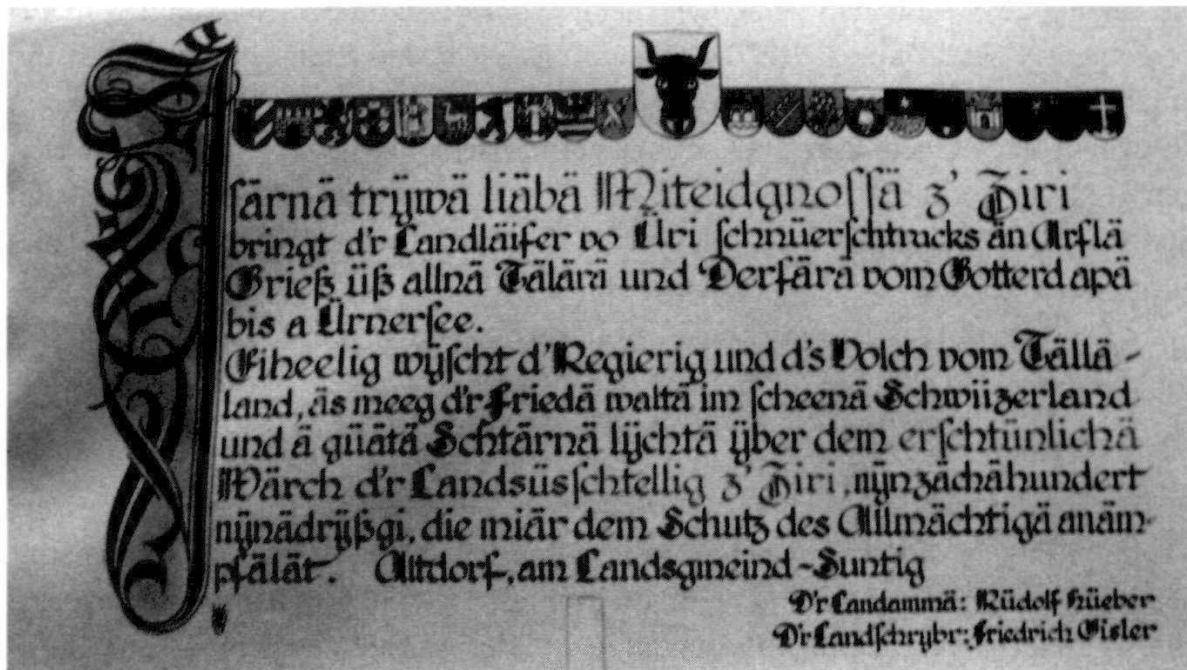 Iſärnä trÿwä liäbä Miteidgnoſſä z' Ziri
bringt d'r Landläifer vo Üri ſchnüerſchtracks än Arflä
Grieß üß allnä Tälärä und Derfärä vom Gotterd apä
bis a Ürnerſee.
Eiheelig wÿſcht d'Regierig und d's Volch vom Tällä-
land, äs meeg d'r Friedä waltä im ſcheenä Schwiizerland
und ä güätä Schtärnä lÿchtä ÿber dem erſchtünlichä
Wärch d'r Landsüsſchtellig z' Ziri, nÿnzächähundert
nÿnädrÿßgi, die miär dem Schutz des Allmächtigä anäm-
pfälät. Altdorf, am Landsgmeind-Suntig
D'r Landammä: Rüdolf Hüeber
D'r Landſchrÿbr: Friedrich Gisler